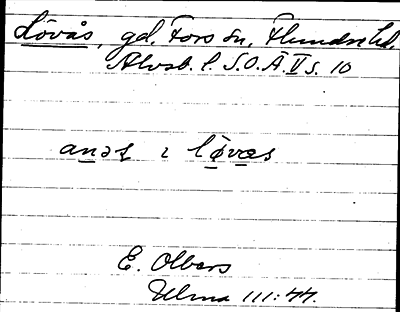 Lövås, gd. Fors sn, Flundre hd.
Älvsb. l. S.O.Ä. II s. 10
i løvæs
E. Olbers
Ulma 111:44.